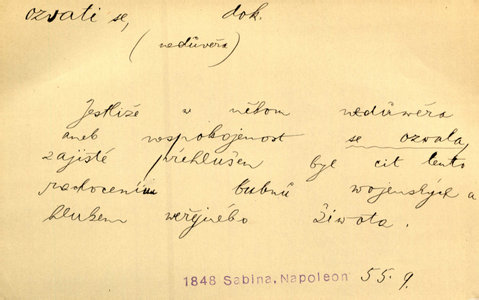 ozvati se, dok.
(nedůvěra)
Jestliže w někom nedůwěra
aneb nespokojenost se ozvala,
zajisté přehlušen byl cit tento
radocením bubnů wojenských a
hlukem weřejného života.
1848 Sabina, Napoleon 55. 9.